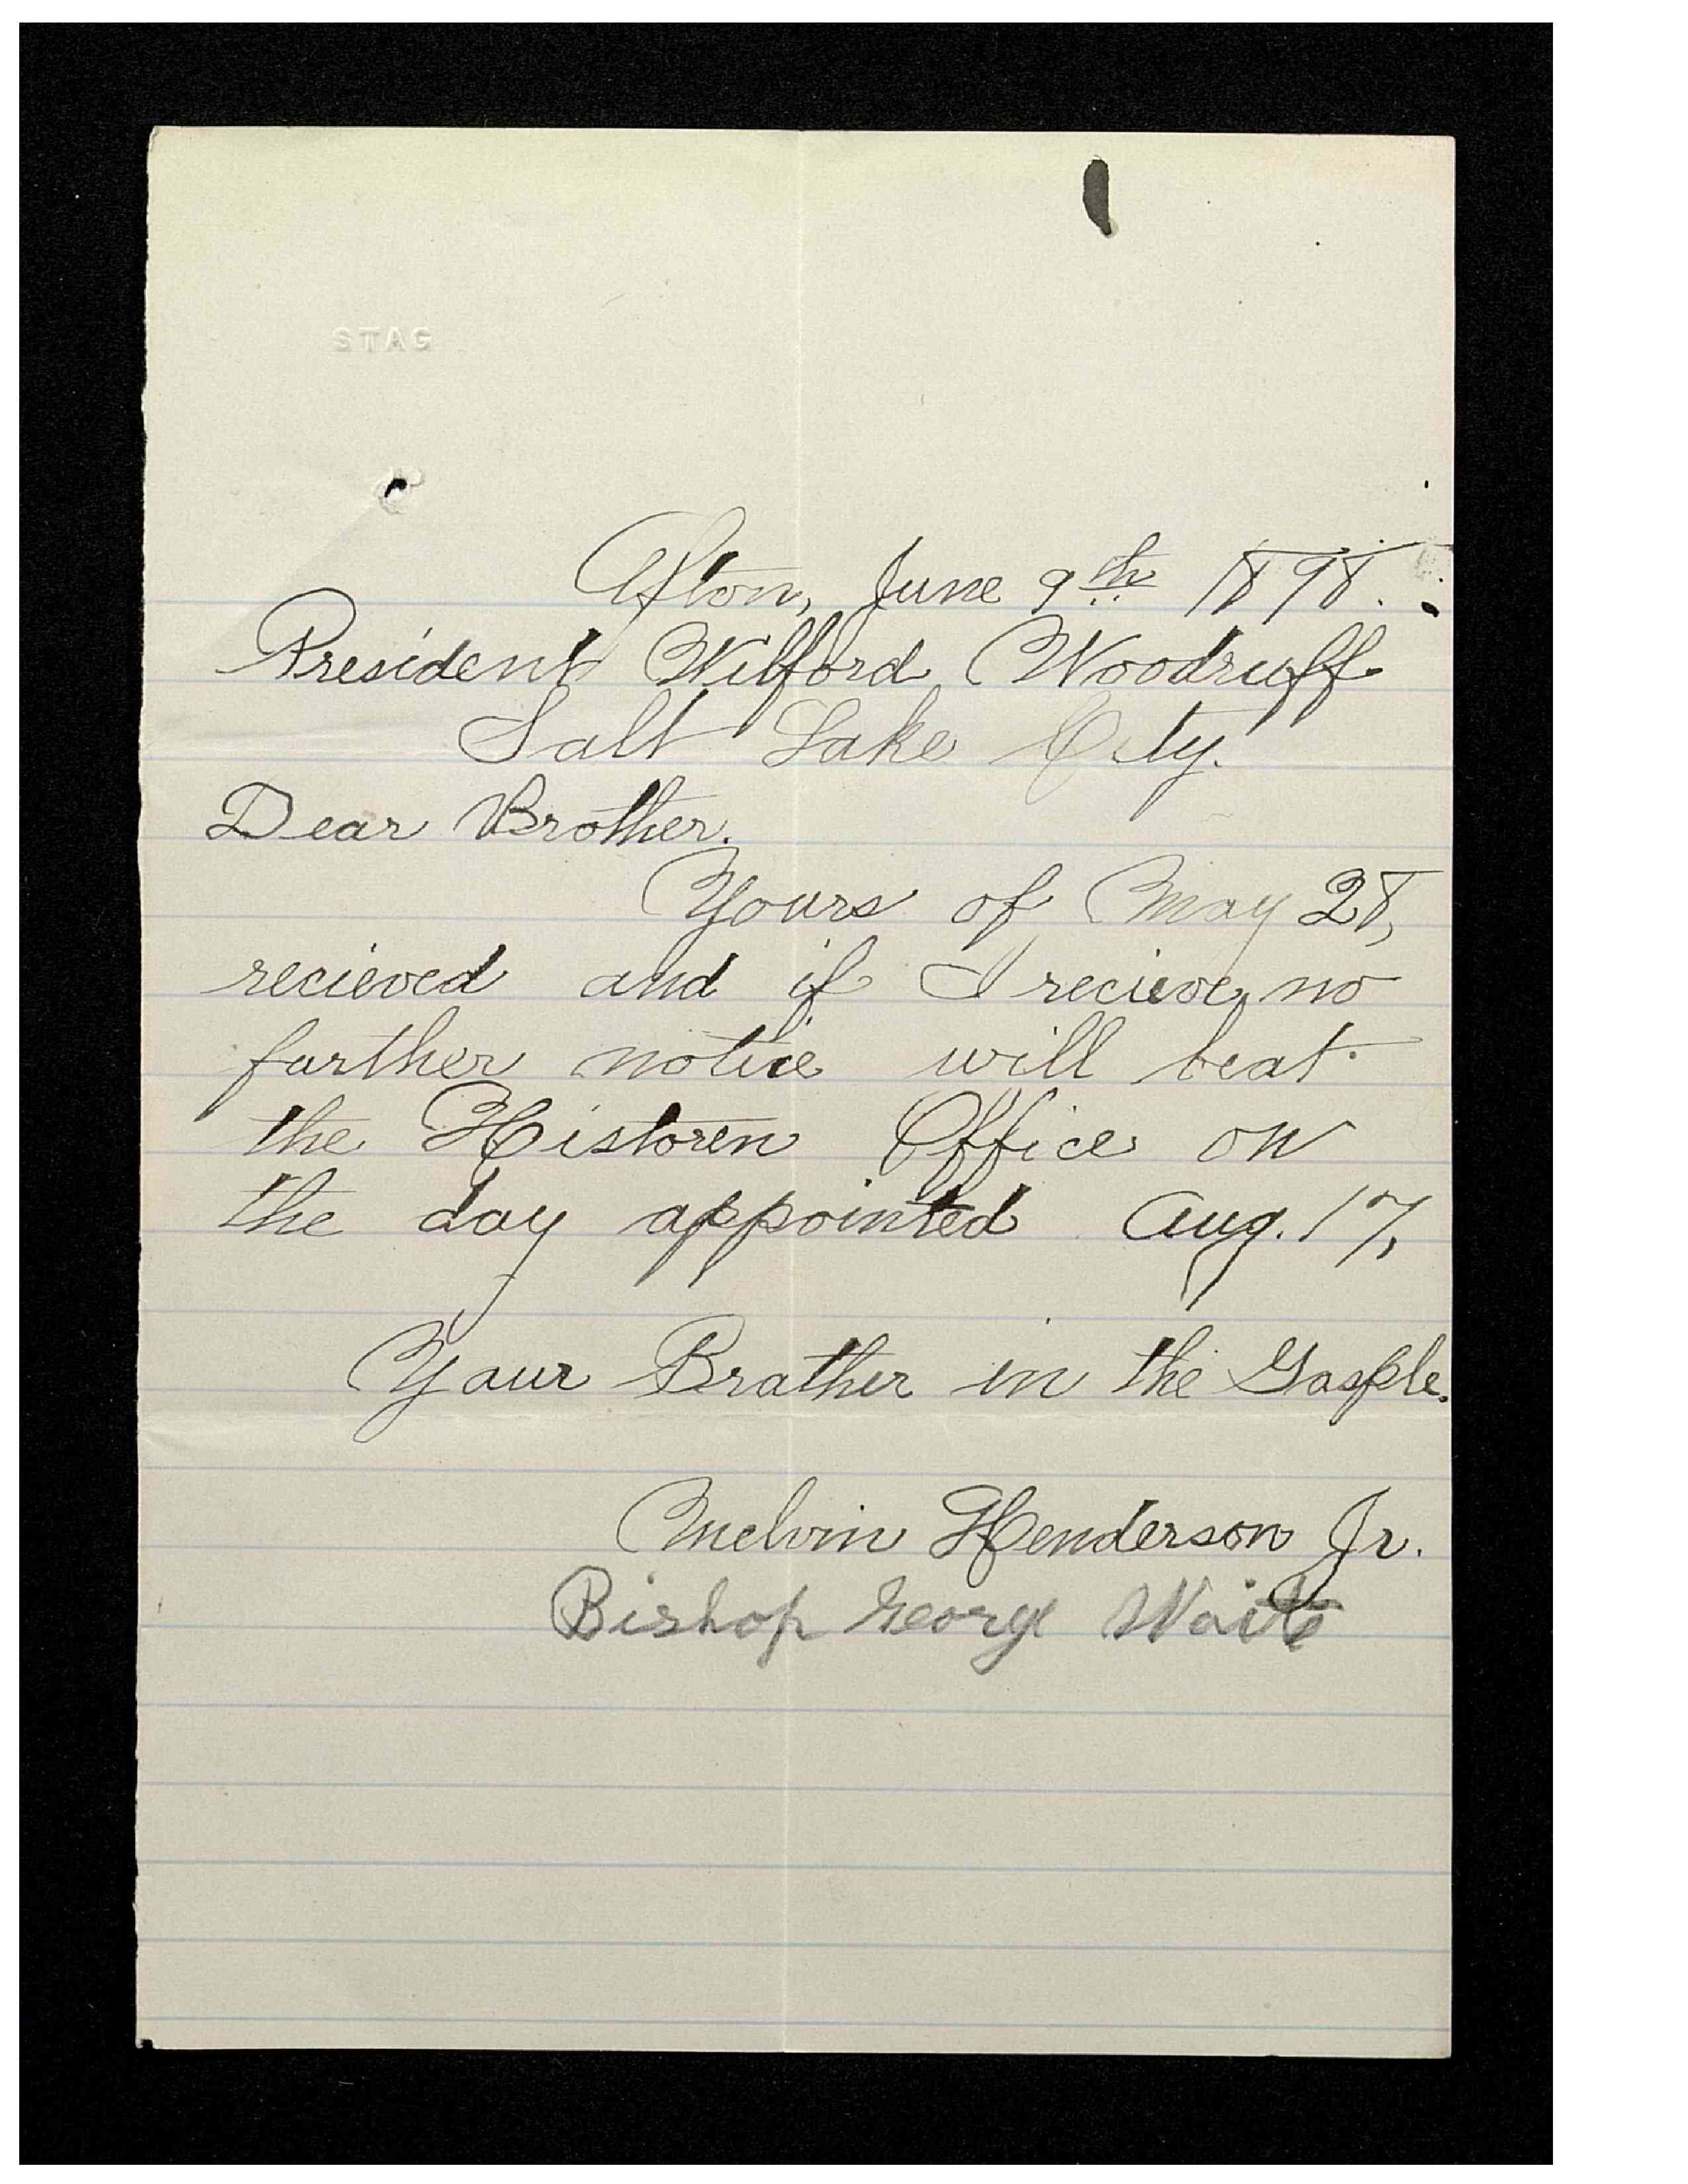 STAG
Afton, June 9th 1898.
President Wilford Woodruff
Salt Lake City.
Dear Brother.
Yours of May 28,
recieved and if I recieve no
further notice will beat
the Historen Office on
the day appointed Aug. 17,
Your Brather in the Gasple.
Melvin Henderson Jr.
Bishop George Waite